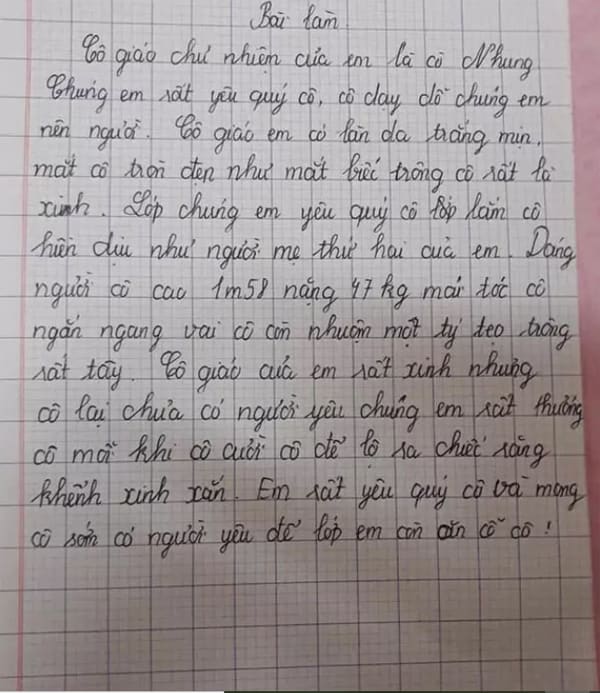 Bài làm.
Cô giáo chủ nhiệm của em là cô Nhung
Chúng em rất yêu quý cô, cô dạy dỗ chúng em
nên người. Cô giáo em có làn da trắng mịn,
mắt cô tròn đẹn như mắt biếc trông cô rất là
xinh. Lớp chúng em yêu quý cô lắm cô
hiền dịu như người mẹ thứ hai của em. Dáng
người cô cao 1m58 nặng 47 kg mái tóc cô
ngắn ngang vai cô còn nhuộm một tý tẹo trông
rất tây. Cô giáo của em rất xinh nhưng
cô lại chưa có người yêu chúng em rất thương
cô mỗi khi cô cười cô để lộ ra chiếc răng
khểnh xinh xắn. Em rất yêu quý cô và mong
cô sớm có người yêu để lớp em còn ăn cỗ cô!